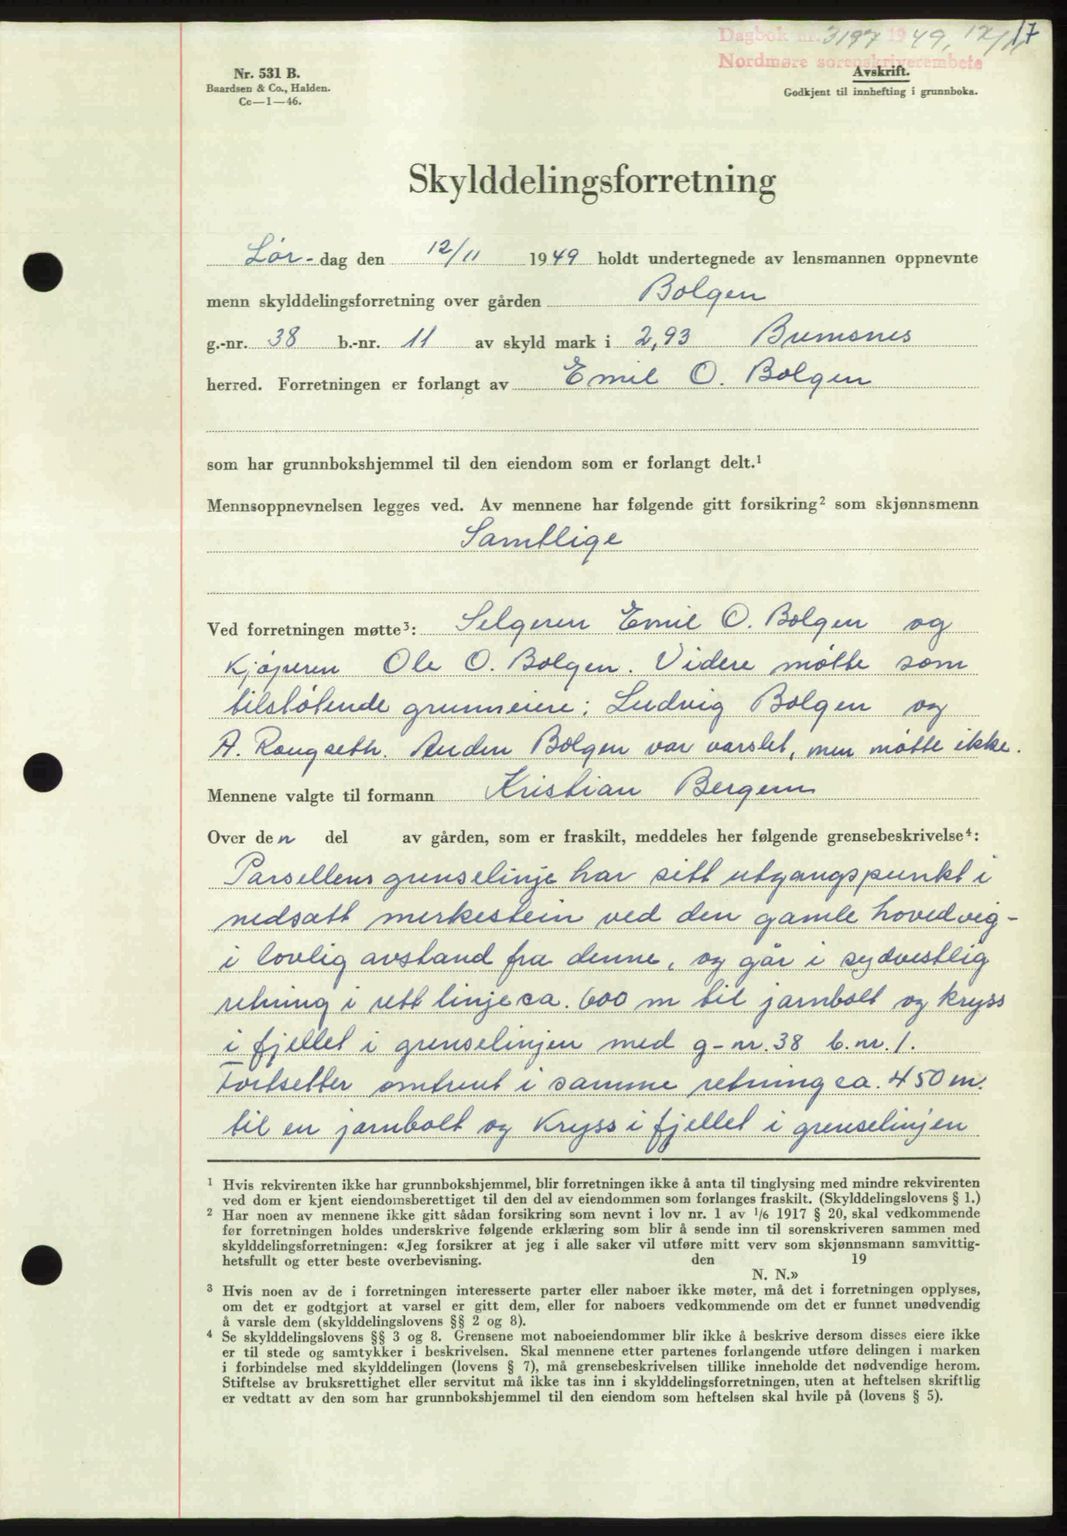 Dagbok nr. 3197 1949, 12/11 17
Nordmøre sorenskriverembete
Nr. 531 B.
Baardsen & Co., Halden.
Cc—1—46.
Avskrift.
Godkjent til innhefting i grunnboka.
Skylddelingsforretning
Lør-dag den 12/11 1949 holdt undertegnede av lensmannen oppnevnte
menn skylddelingsforretning over gården Bolgen
g.-nr. 38 b.-nr. 11 av skyld mark i 2,93 Bremsnes
herred. Forretningen er forlangt av Emil O. Bolgen
som har grunnbokshjemmel til den eiendom som er forlangt delt.¹
Mennsoppnevnelsen legges ved. Av mennene har følgende gitt forsikring² som skjønnsmenn
Samtlige
Ved forretningen møtte³: Selgeren Emil O. Bolgen og
Kjøperen Ole O. Bolgen. Videre møtte som
tilstøtende grunneiere: Ludvig Bolgen og
A. Rangseth. Anden Bolgen var varslet, men møtte ikke.
Mennene valgte til formann Kristian Bergem
Over den del av gården, som er fraskilt, meddeles her følgende grensebeskrivelse⁴:
Parsellens grenselinje har sitt utgangspunkt i
nedsatt merkestein ved den gamle hovedveg-
i lovlig avstand fra denne, og går i sydvestlig
retning i rett linje ca. 600 m til jarnbolt og kryss
i fjellet i grenselinjen med g-nr. 38 b.nr. 1.
Fortsetter omtrent i samme retning ca. 450 m.
til en jarnbolt og Kryss i fjellet i grenselinjen
¹ Hvis rekvirenten ikke har grunnbokshjemmel, blir forretningen ikke å anta til tinglysing med mindre rekvirenten
ved dom er kjent eiendomsberettiget til den del av eiendommen som forlanges fraskilt. (Skylddelingslovens § 1.)
² Har noen av mennene ikke gitt sådan forsikring som nevnt i lov nr. 1 av 1/6 1917 § 20, skal vedkommende
før forretningen holdes underskrive følgende erklæring som blir å sende inn til sorenskriveren sammen med
skylddelingsforretningen: «Jeg forsikrer at jeg i alle saker vil utføre mitt verv som skjønnsmann samvittig-
hetsfullt og etter beste overbevisning. den 19
N. N.»
³ Hvis noen av de i forretningen interesserte parter eller naboer ikke møter, må det i forretningen opplyses,
om det er godtgjort at varsel er gitt dem, eller for naboers vedkommende om det er funnet unødvendig
å varsle dem (skylddelingslovens §§ 2 og 8).
⁴ Se skylddelingslovens §§ 3 og 8. Grensene mot naboeiendommer blir ikke å beskrive dersom disses eiere ikke
er til stede og samtykker i beskrivelsen. Skal mennene etter partenes forlangende utføre delingen i marken
i forbindelse med skylddelingen (lovens § 7), må grensebeskrivelsen tillike inneholde det nødvendige herom.
Stiftelse av bruksrettighet eller servitut må ikke tas inn i skylddelingsforretningen, uten at heftelsen skriftlig
er vedtatt av den som har grunnbokshjemmel til den eiendom som heftelsen skal hvile på (lovens § 5).